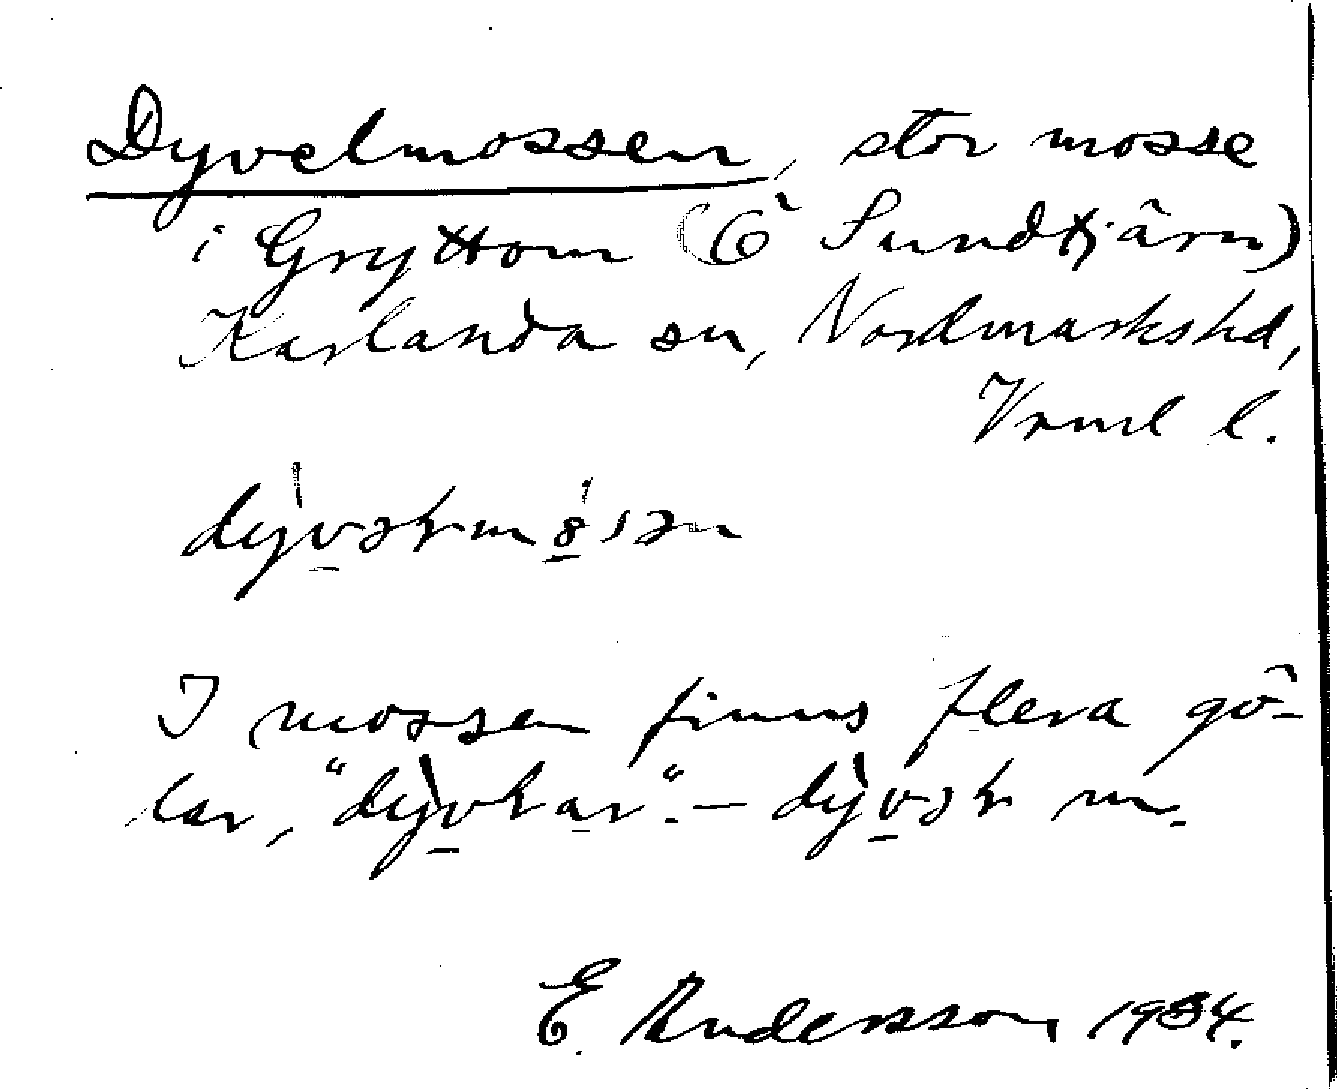 Dyvelmossen, stor mosse
i Gryttom (Ö Sundtjärn)
Karlanda sn, Nordmarkshd,
Vrml l.
I mossen finns flera gö-
lar, "dyvlar". — m.
E. Andersson 1934.